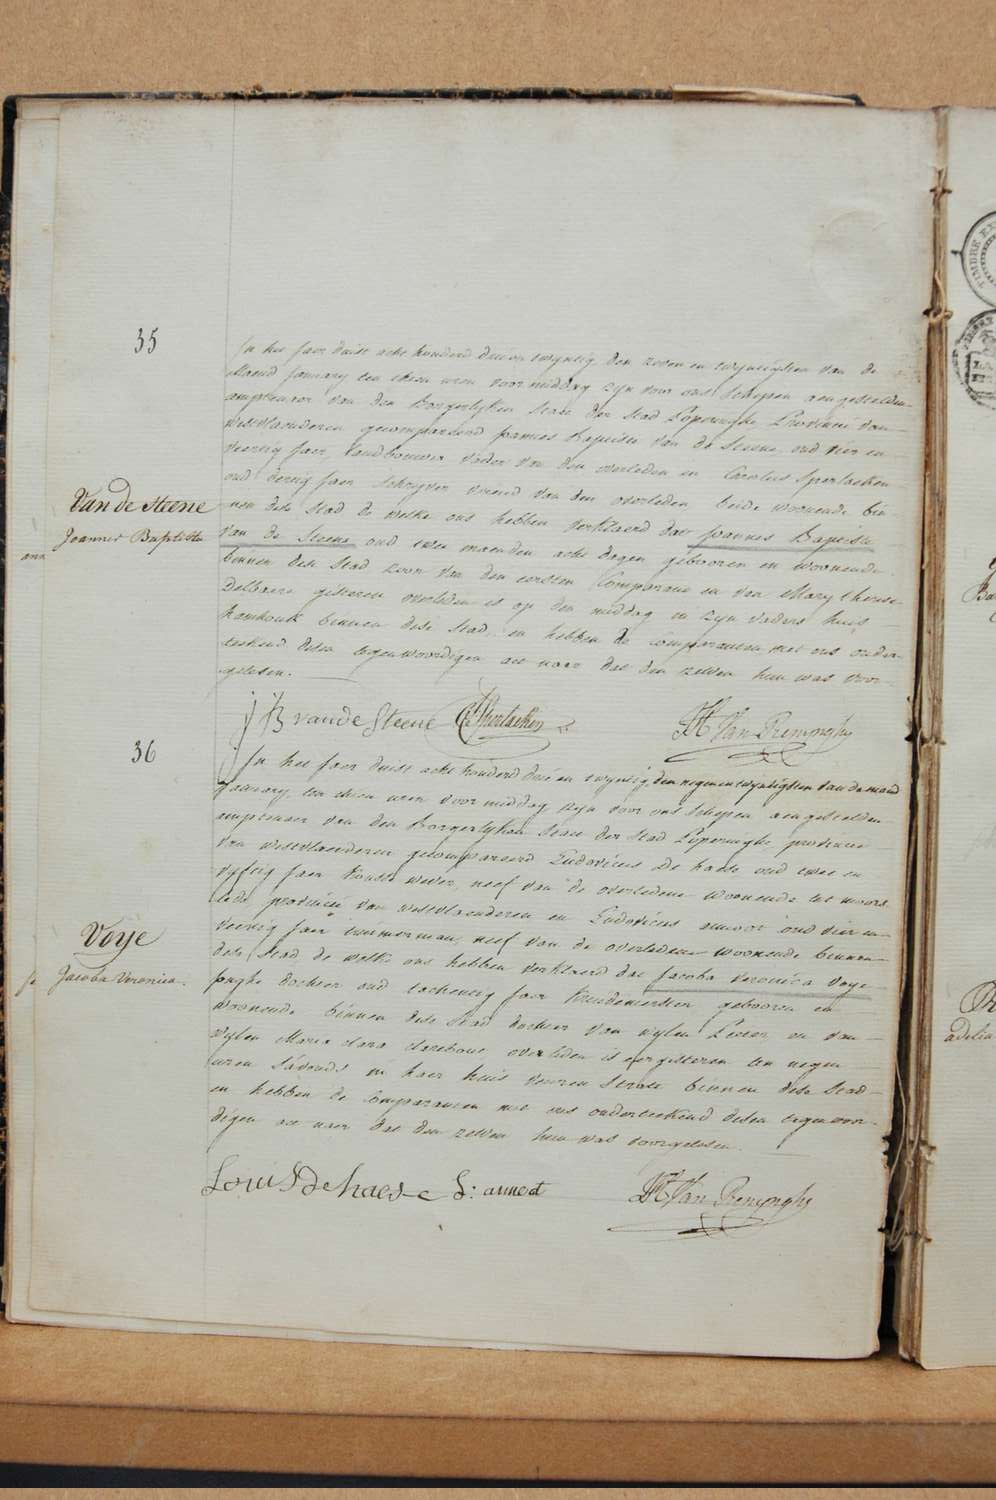 35
In het jaer duist acht honderd drie en twyntig den zeven en twyntigsten van de
Maend January ten thien uren voormiddag zyn voor ons Schepen aengestelden
amptenaer van den Borgerlyken Staet der Stad Poperinghe Provincie van
westvlaenderen gecompareerd joannes Baptiste van de Steene, oud vier en
veertig jaer, Landbouwer vader van den overleden en Carolus Sperlaeken
oud dertig jaer Schryver vriend van den overleden beide woonende bin-
nen dese Stad de welke ons hebben verklaerd dat joannes Baptiste
Van de Steene
Joannes Baptiste
van de Steene oud twee maenden acht dagen gebooren en woonende
binnen dese Stad zoon van den eersten Comparant en van Mary therese
Delbaere gisteren overleden is op den middag in zyn vaders huis
binnen dese Stad, en hebben de Comparanten met ons onder-
teekend desen tegenwoordigen act naer dat den zelven hun was voor-
gelesen.
J B van de Steene C Sperlaeken Van Renynghe
36
In het jaer duist acht honderd drie en twyntig, den negenentwyntigsten van de maend
january, ten thien uren voormiddag zyn voor ons Schepen aengestelden
amptenaer van den Borgerlyken Staet der Stad Poperinghe provincie
van westvlaenderen gecompareerd Ludovicus De haese oud twee en
vyftig jaer wever, neef van de overledene woonende tot moors-
lede provincie van westvlaenderen en Ludovicus oud vier en
veertig jaer timmerman, neef van de overledene woonende binnen
dese Stad de welke ons hebben verklaerd dat jacoba veronica voye
Voye
Jacoba Veronica.
jonghe dochter oud tachentig jaer gebooren en
woonende binnen dese Stad dochter van wylen Pieter en van
wylen Maria clara clarebout, overleden is eergisteren ten negen
uren s'avonds in haer huis binnen dese Stad
en hebben de Comparanten met ons onderteekend desen tegenwoor-
digen act naer dat den zelven hun was voorgelesen.
Louis De haese L: Van Renynghe
adelia